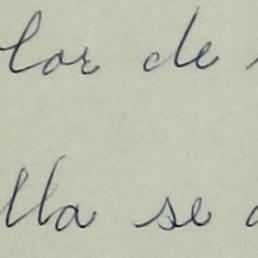 lor de
lla se